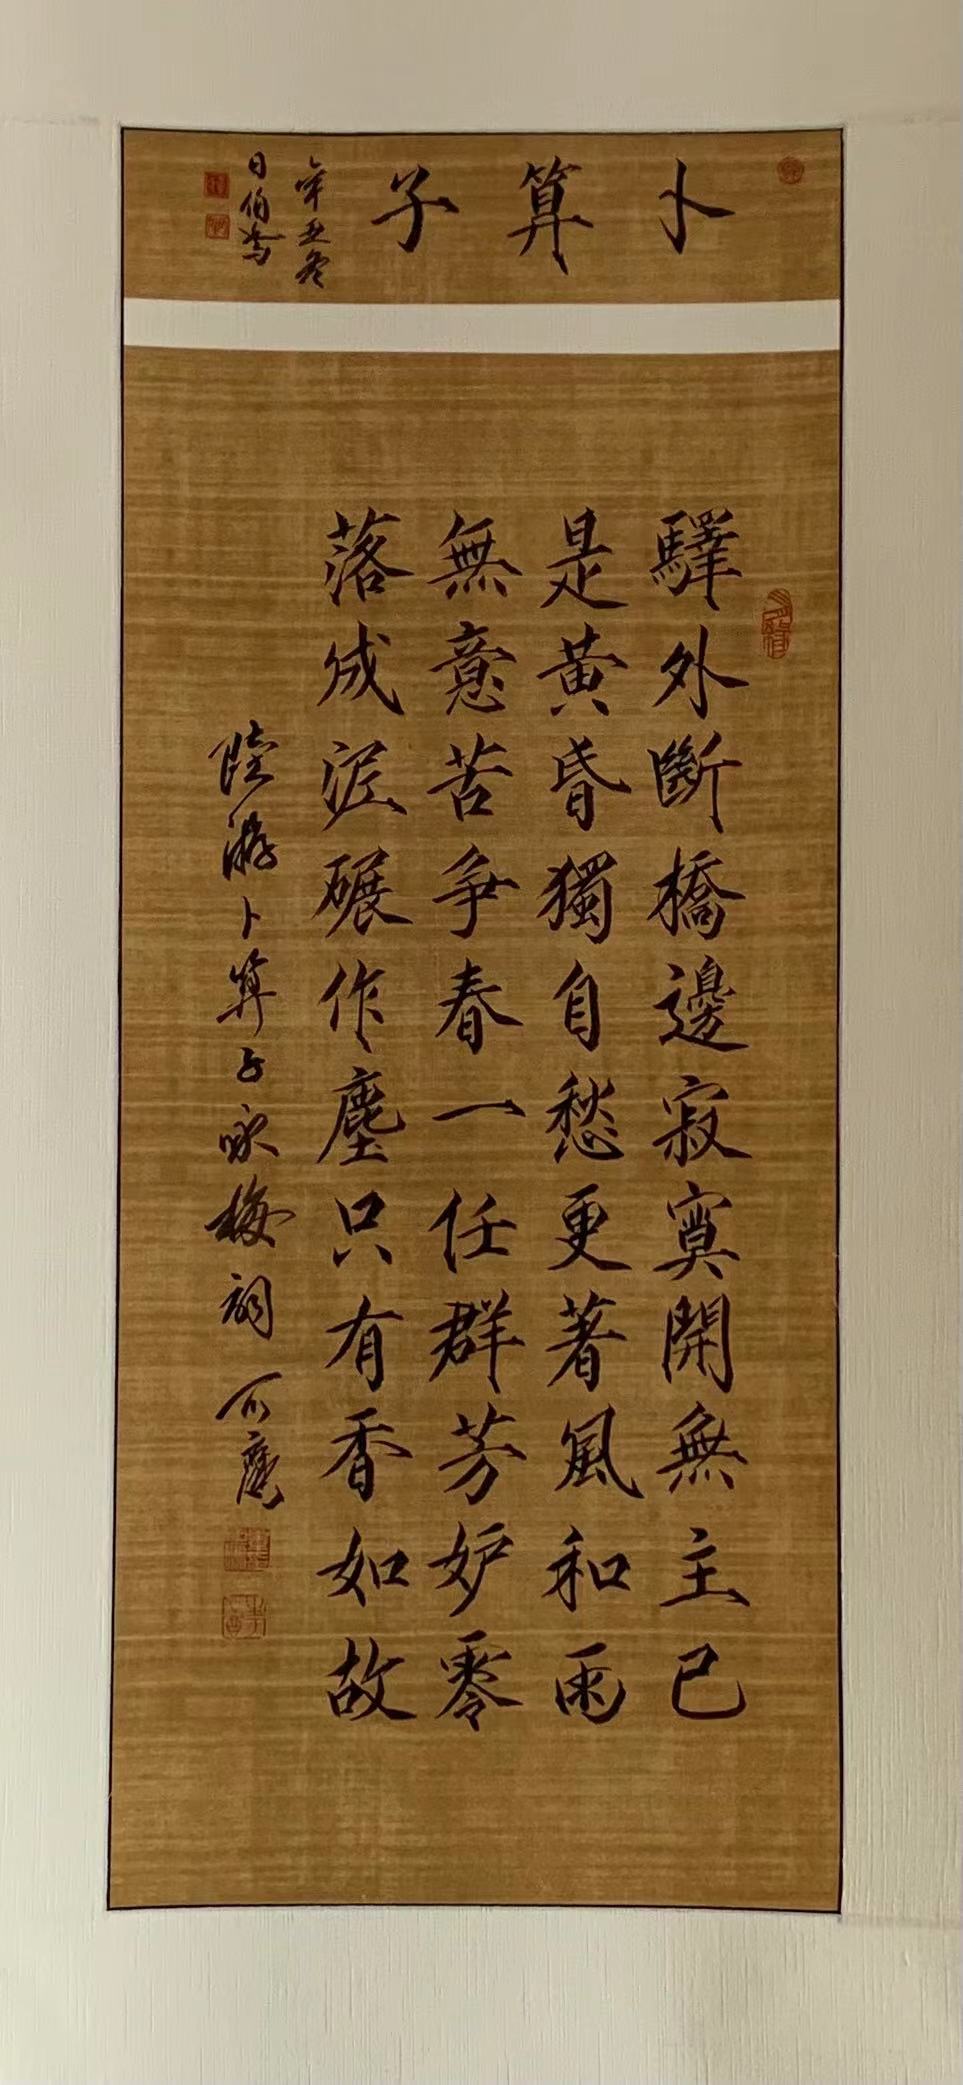 卜算子
辛丑冬
日伯
驛外斷橋邊寂寞開無主已
是黃昏獨自愁更著風和雨
無意苦爭春一任群芳妒零
落成泥碾作塵只有香如故
陸游卜算子咏梅詞